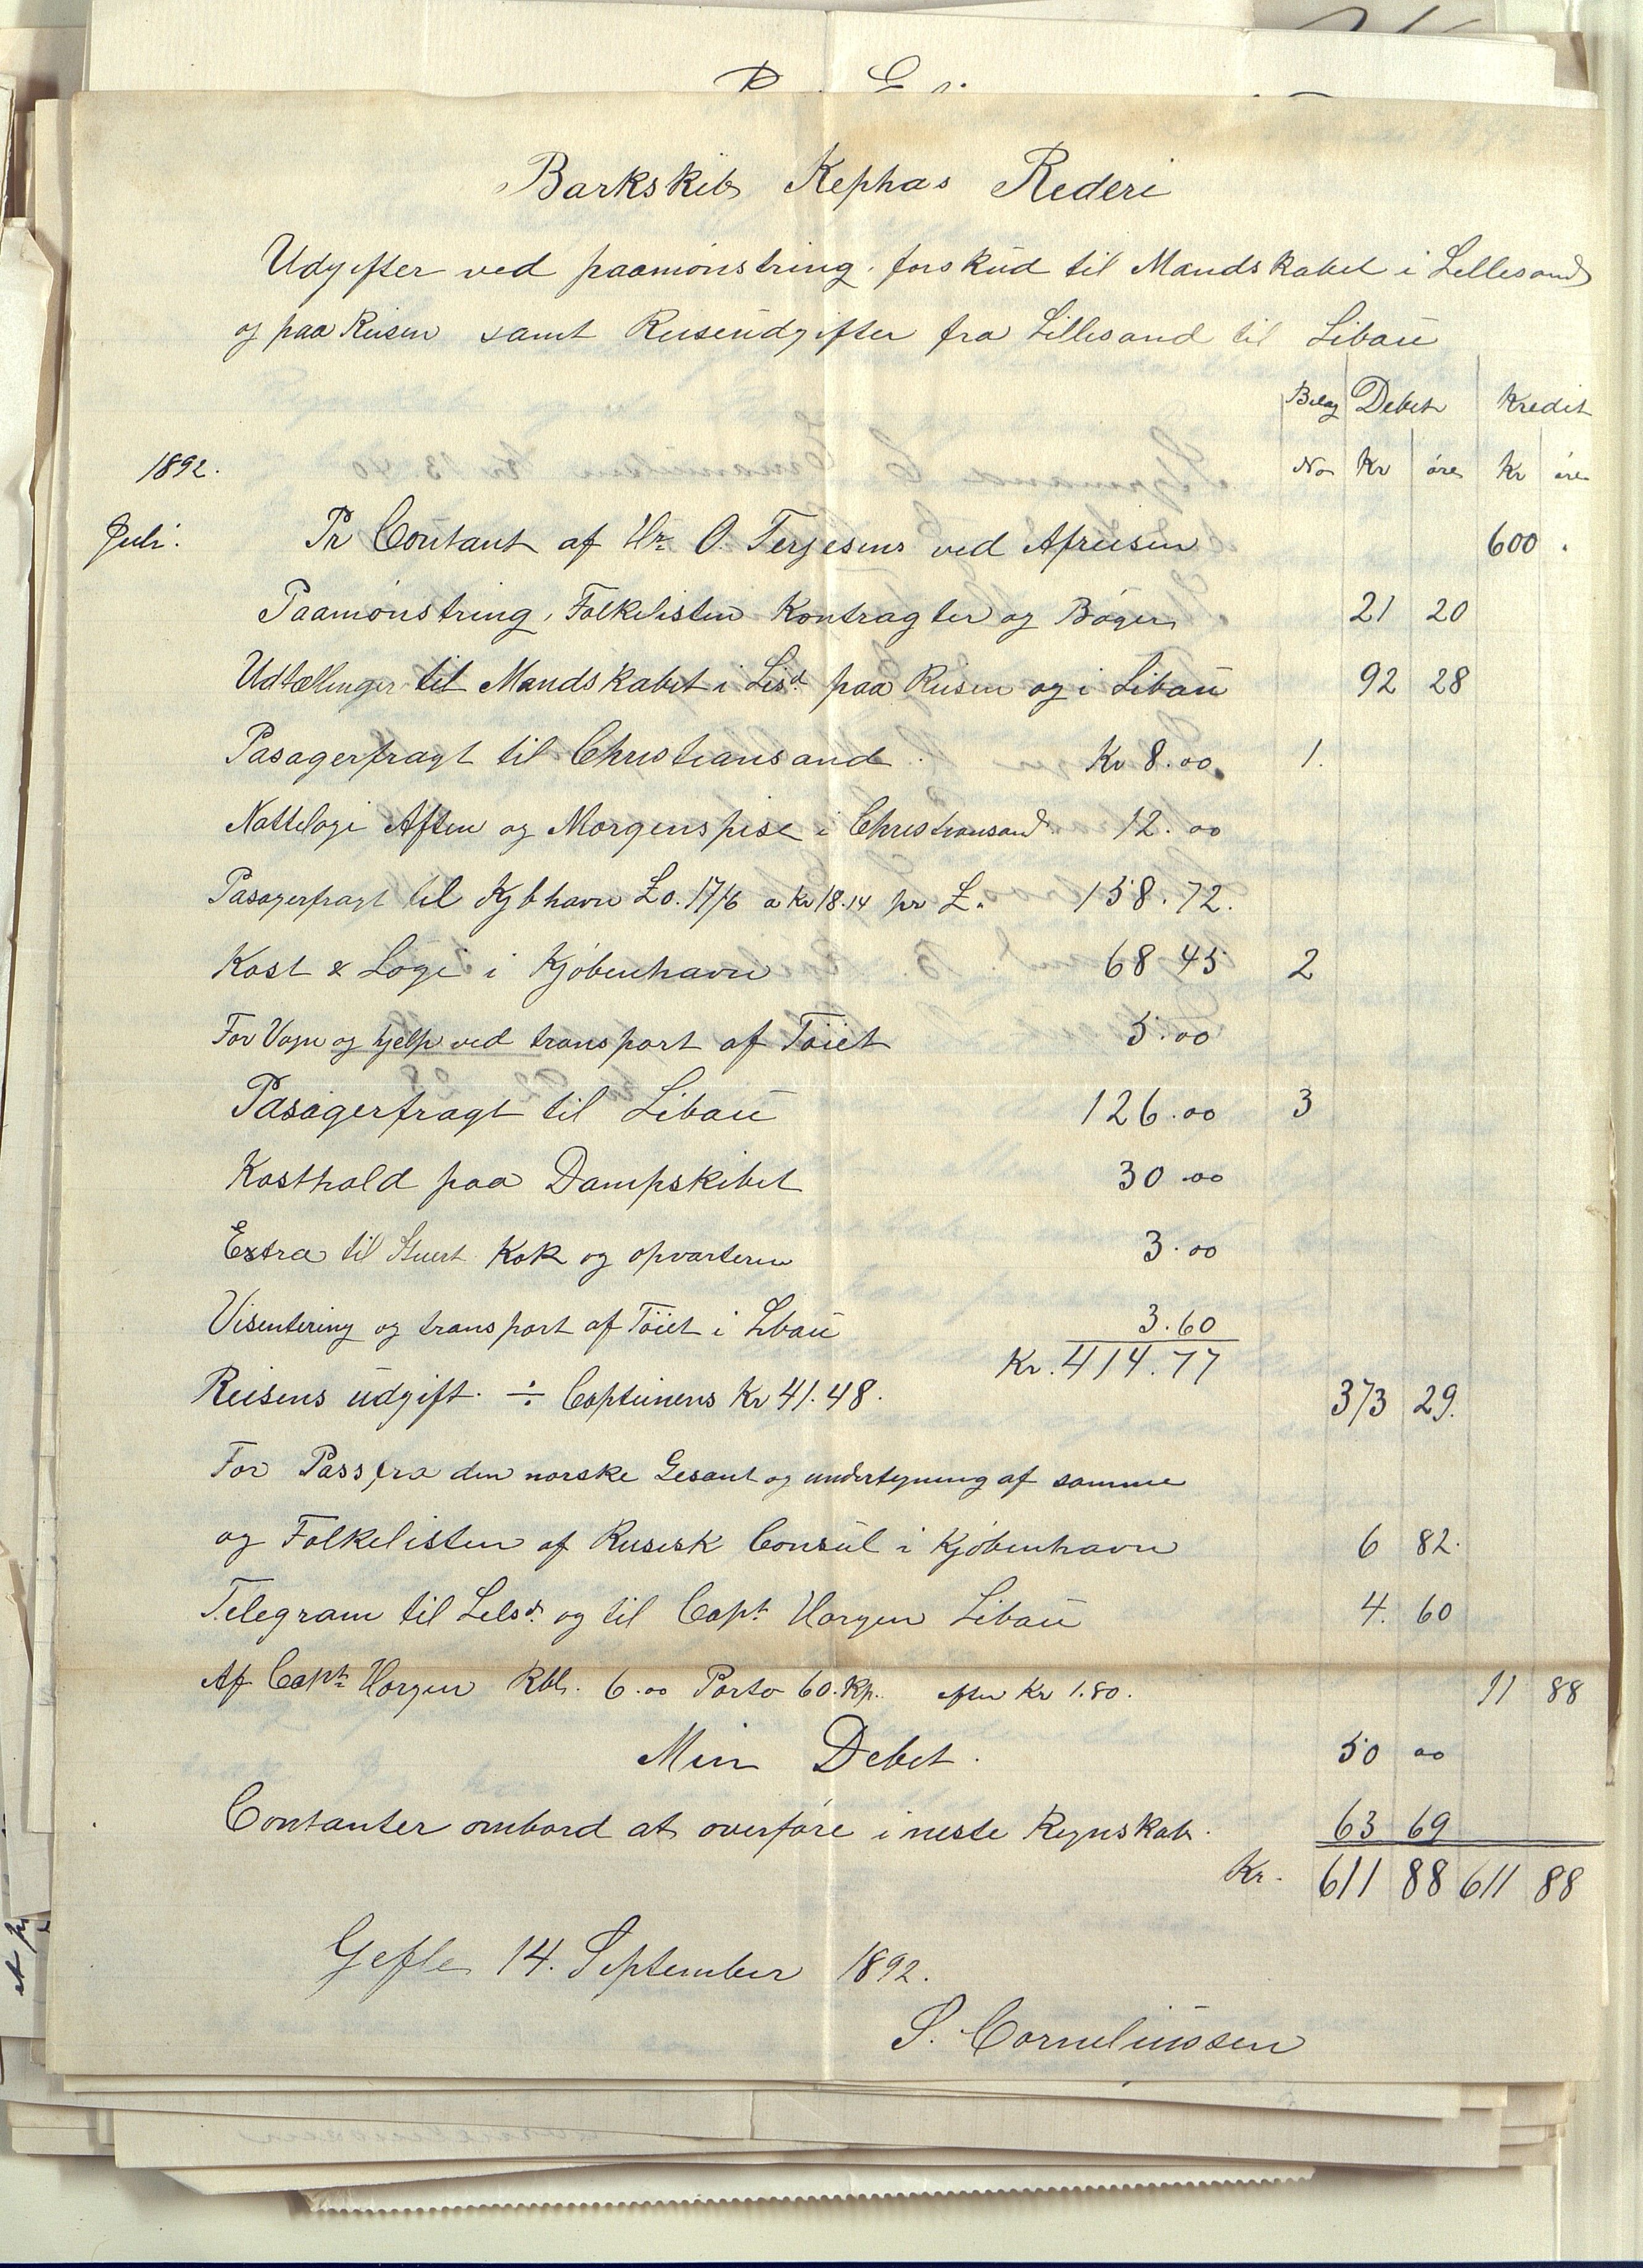 Barkskib Kephas Rederi
Udgifter ved paamönstring, forskud til Mandskabet i Lillesand
og paa Reisen samt Reiseudgifter fra Lillesand til Libau
Bilag Debet Kredit
1892. No Kr öre Kr öre
Juli. Pr Contant af Hr. O. Terjesens ved Afreisen 600 .
Paamönstring, Folkelisten Kontragter og Böger 21 20
Udtællinger til Mandskabet i Lisd. paa Reisen og i Libau 92 28
Pasagerfragt til Christiansand. Kr 8.00. 1.
Nattelogi Aften og Morgenspise i Christiansand. 12.00
Pasagerfragt til Kjbhavn £ 8.17/6 a Kr 18.14 pr £. 158.72.
Kost & Logi i Kjöbenhavn 68 45 2
For Vogn og hjelp ved transport af Töiet 5.00
Pasagerfragt til Libau 126.00 3
Kosthold paa Dampskibet 30.00
Extra til Stuert Kok og opvarteren 3.00
Visentering og transport af Töiet i Libau 3.60
Kr. 414.77
Reisens udgift. ÷ Capteinens Kr 41.48. 373 29.
For Pass fra den norske Gesant og undertegning af samme
og Folkelisten af Rusisk Consul i Kjöbenhavn 6 82.
Telegram til Lelsd. og til Capt Horgen Libau 4. 60
Af Capt. Horgen Rbl. 6.00 Porto 60. Kp. efter Kr 1.80. 11 88
Min Debet. 50 00
Contanter ombord at overföre i neste Regnskab. 63 69
Kr. 611 88 611 88
Gefle 14. September 1892.
S. Corneliussen